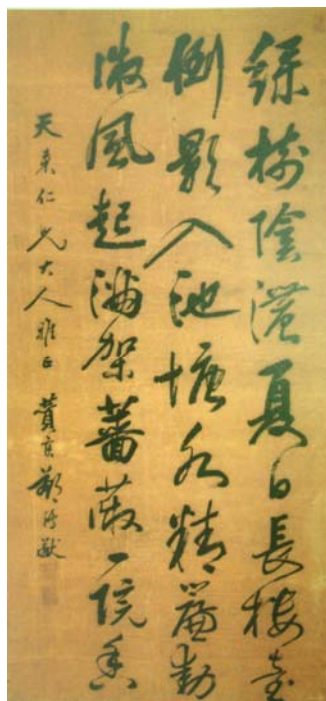 綠樹陰濃夏日長樓臺
倒影入池塘水精簾動
微風起滿架薔薇一院香
天來仁兄大人雅正 鄭鴻猷